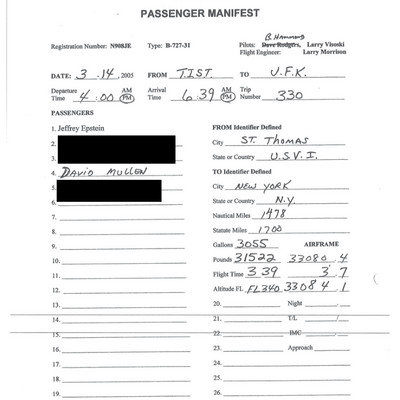 PASSENGER MANIFEST
B. HAMMOND
Registration Number: N908JE Type: B-727-31 Pilots: Dave Rodgers, Larry Visoski
Flight Engineer: Larry Morrison
DATE: 3.14, 2005 FROM T.I.S.T. TO J.F.K.
Departure Time 4:00 AM PM Arrival Time 6:39 AM PM Trip Number 330
PASSENGERS
1. Jeffrey Epstein FROM Identifier Defined
2. City ST. THOMAS
3. State or Country U.S.V.I.
4. DAVID MULLEN TO Identifier Defined
5. City NEW YORK
6. State or Country N.Y.
7. Nautical Miles 1478
8. Statute Miles 1700
9. Gallons 3055 AIRFRAME
10. Pounds 31522 33080.4
11. Flight Time 3 39 3.7
12. Altitude FL FL340 33084.1
13. 20. Night
14. 21. T/L
15. 22. IMC
16. 23. Approach
17. 24.
18. 25.
19. 26.